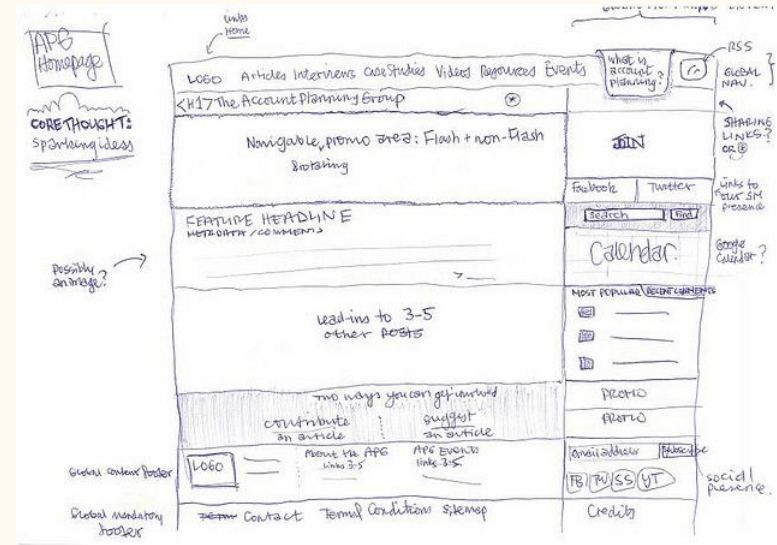 links
Home
APG
Homepage
CORE THOUGHT:
Sparking ideas
RSS
LOGO Articles Interviews Case Studies Videos Resources Events
What is
account
planning?
GLOBAL
NAV.
<H1> The Account Planning Group
SHARING
LINKS?
OR
Navigable, promo area: Flash + non-Flash
JOIN
Facebook Twitter
Links to
our SM
presence
Search Find
FEATURE HEADLINE
METADATA / COMMENTS
Calendar.
Google
Calendar?
Possibly
an image?
MOST POPULAR RECENT COMMENTS
Lead-ins to 3-5
other posts
Two ways you can get involved
contribute
an article
suggest
an article
PROMO
PROMO
Global content footer
LOGO
About the APG
links 3-5
APG EVENTS
links 3-5.
Email address Subscribe
FB TW SS YT
social
presence.
Global mandatory
footer
Contact Terms/Conditions Sitemap
Credits